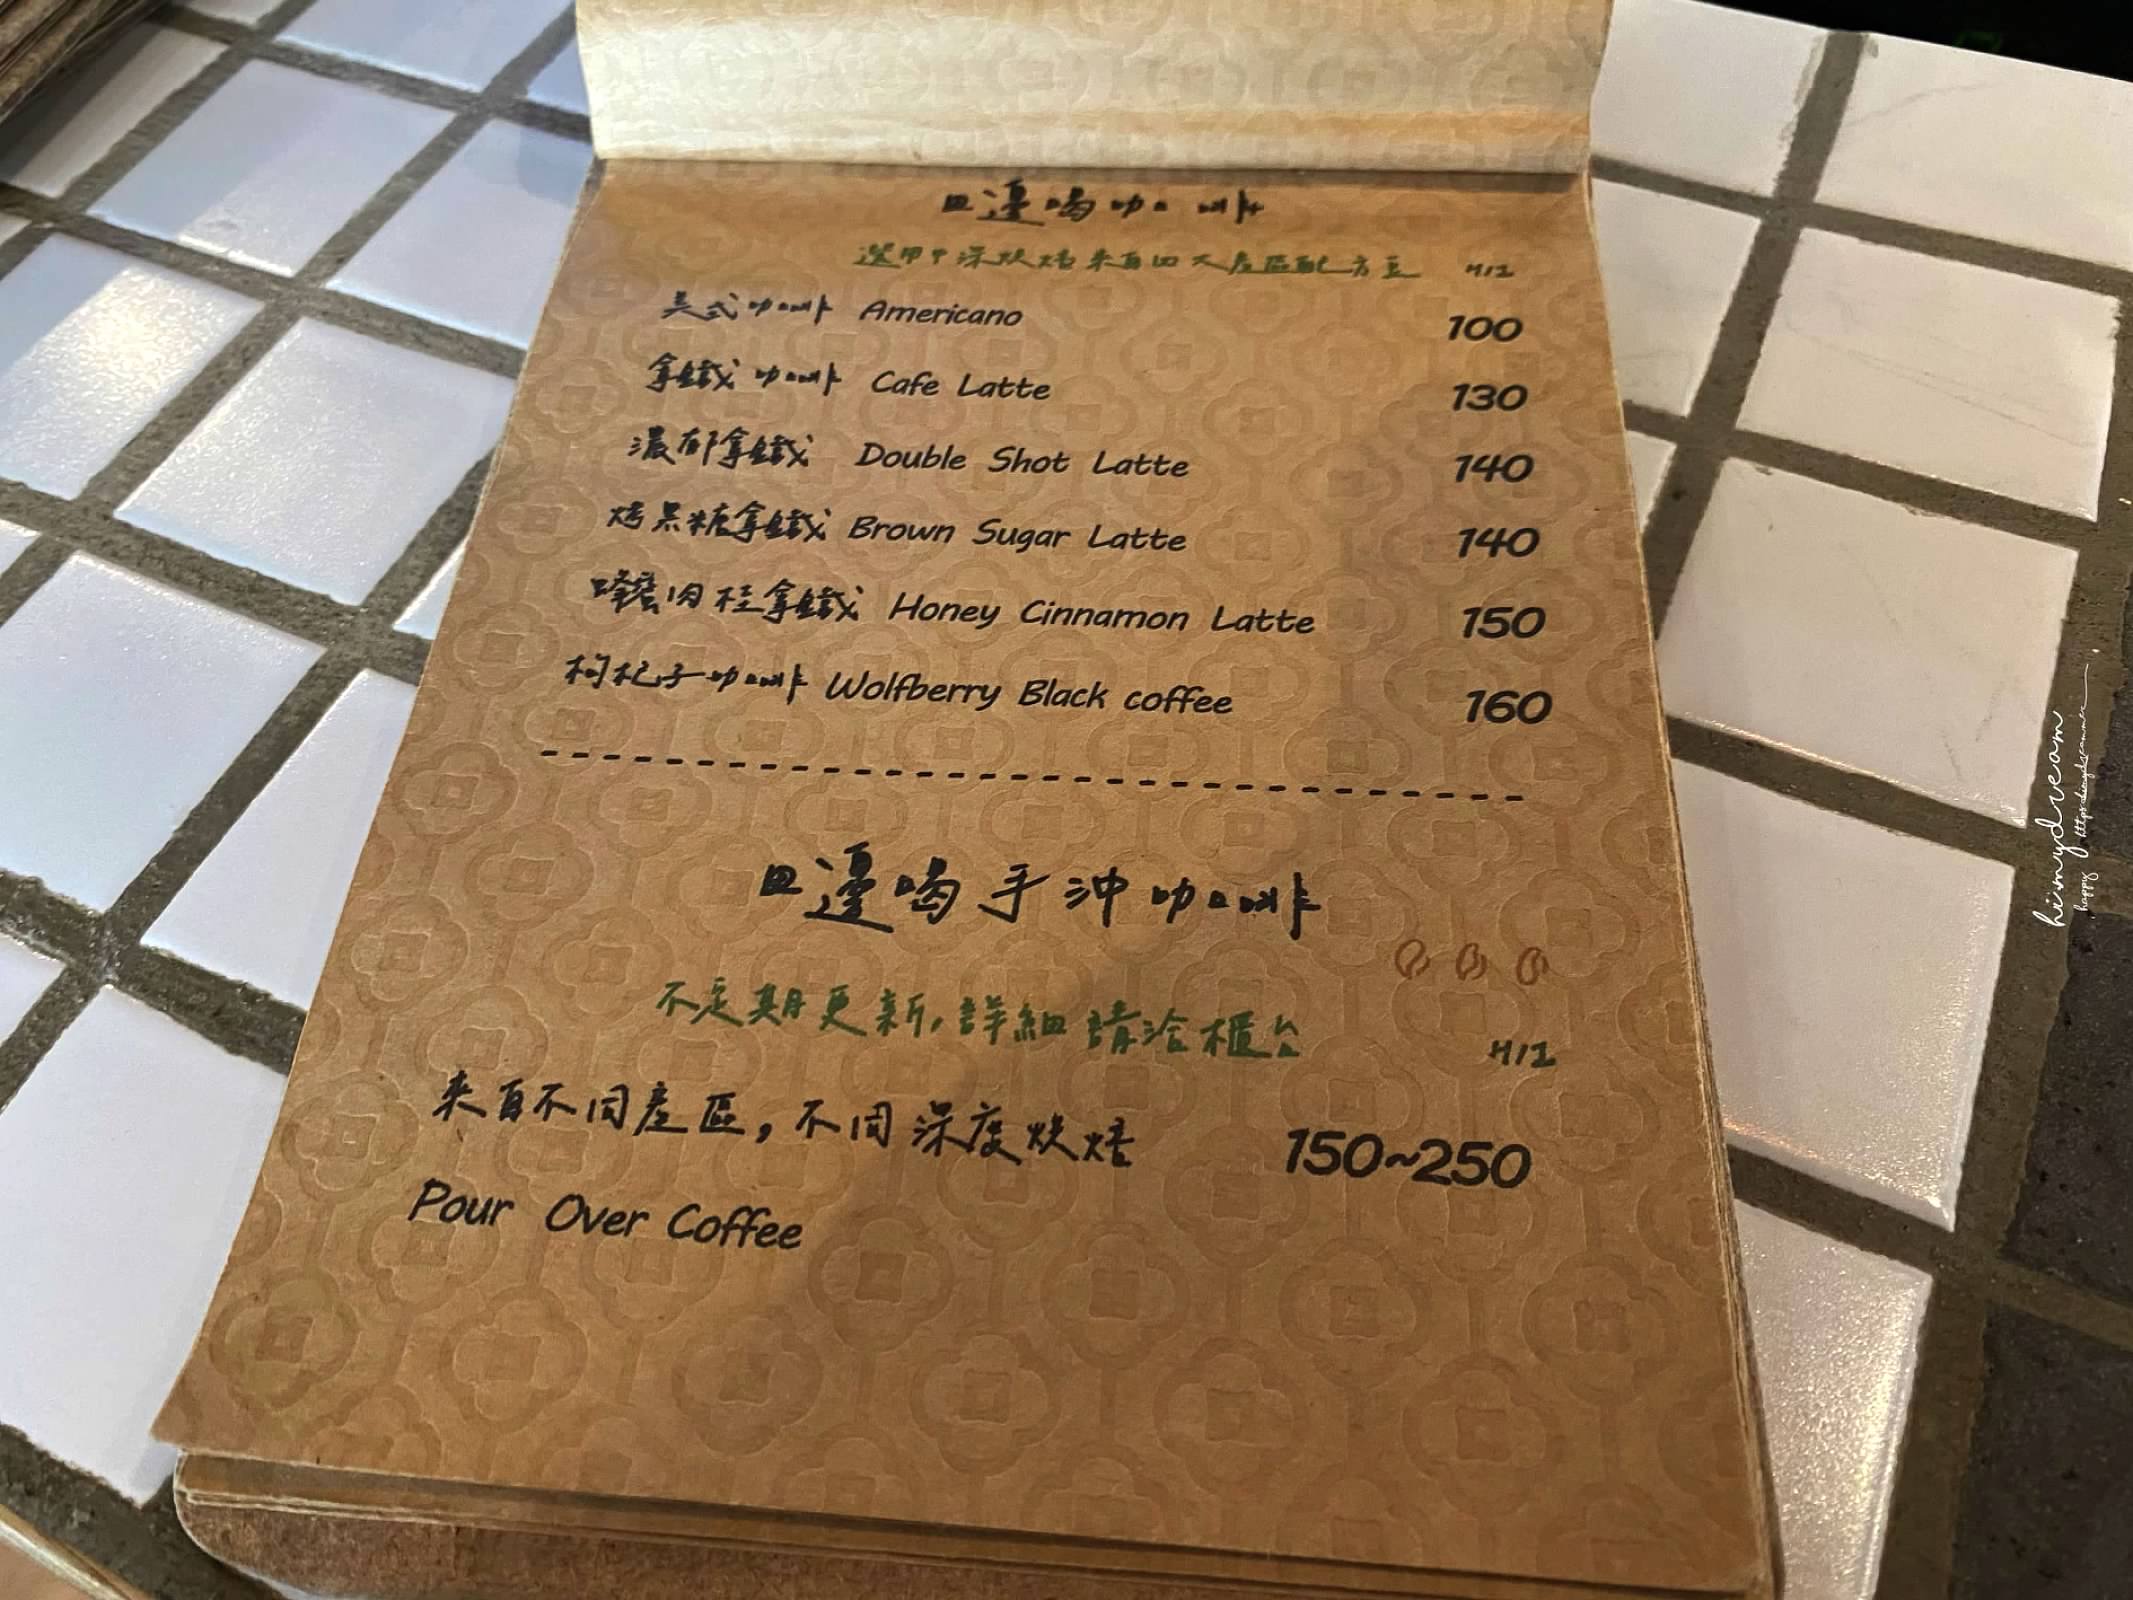 田邊喝咖啡
選用中深烘焙來自四大產區配方豆 H/I
美式咖啡 Americano 100
拿鐵咖啡 Cafe Latte 130
濃郁拿鐵 Double Shot Latte 140
烤黑糖拿鐵 Brown Sugar Latte 140
蜂蜜肉桂拿鐵 Honey Cinnamon Latte 150
枸杞子咖啡 Wolfberry Black coffee 160
田邊喝手沖咖啡
不定期更新，詳細請洽櫃台 H/I
來自不同產區，不同深度烘焙 150~250
Pour Over Coffee
hiimydream